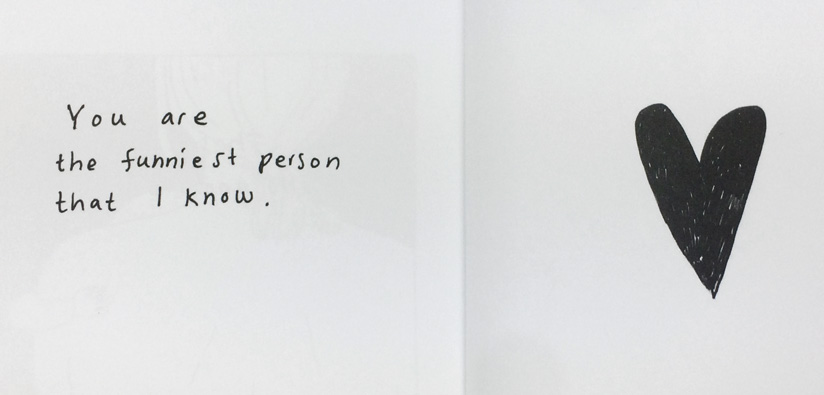 You are
the funniest person
that I know.